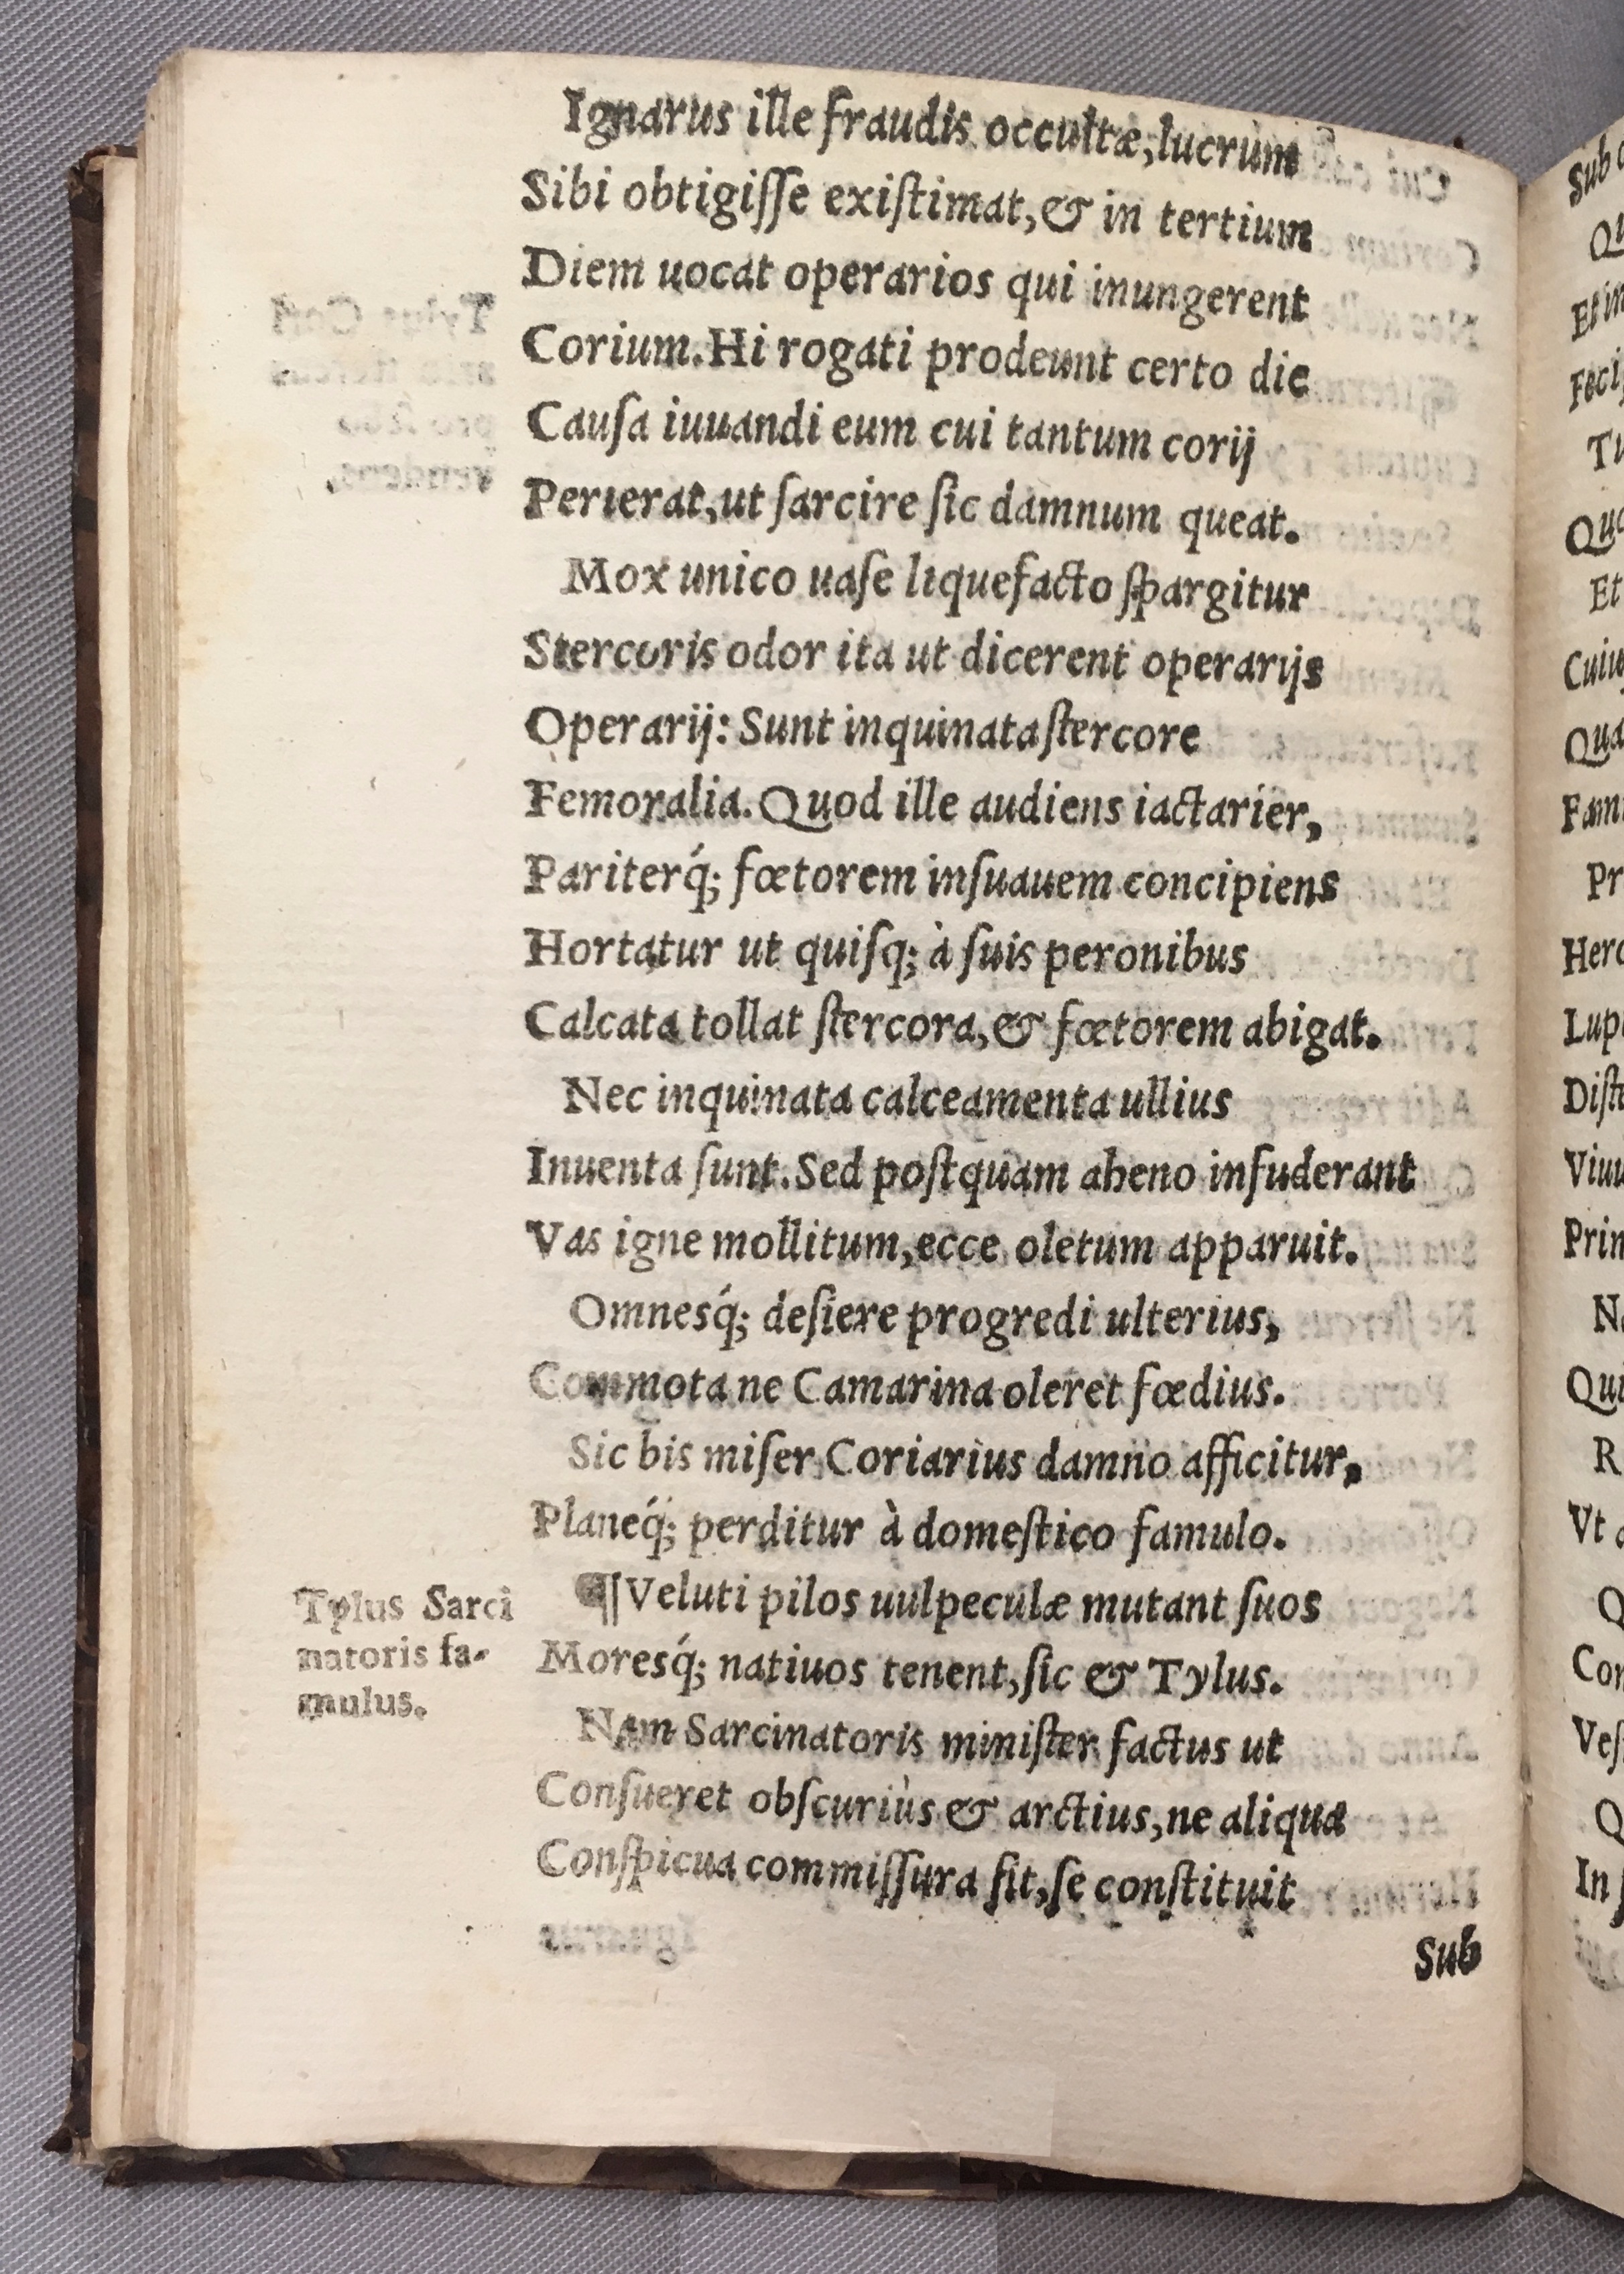 Ignarus ille fraudis occultæ, lucrum
Sibi obtigiſſe exiſtimat, & in tertium
Diem uocat operarios qui inungerent
Corium. Hi rogati prodeunt certo die
Cauſa iuuandi eum cui tantum corij
Perierat, ut ſarcire ſic damnum queat.
Mox unico uaſe liquefacto ſpargitur
Stercoris odor ita ut dicerent operarijs
Operarij: Sunt inquinata ſtercore
Femoralia. Quod ille audiens iactarier,
Pariterq́; fœtorem inſuauem concipiens
Hortatur ut quiſq; à ſuis peronibus
Calcata tollat ſtercora, & fœtorem abigat.
Nec inquinata calceamenta ullius
Inuenta ſunt. Sed poſtquam aheno infuderant
Vas igne mollitum, ecce oletum apparuit.
Omnesq́; deſiere progredi ulterius,
Commota ne Camarina oleret fœdius.
Sic bis miſer Coriarius damno afficitur,
Planeq́; perditur à domeſtico famulo.
¶ Veluti pilos uulpeculæ mutant ſuos
Moresq́; natiuos tenent, ſic & Tylus.
Nam Sarcinatoris miniſter factus ut
Conſueret obſcuriùs & arctius, ne aliqua
Conſpicua commiſſura ſit, ſe conſtituit
Sub
Tylus Sarci
natoris fa-
mulus.
Qu
Et
Pr
Vt
In